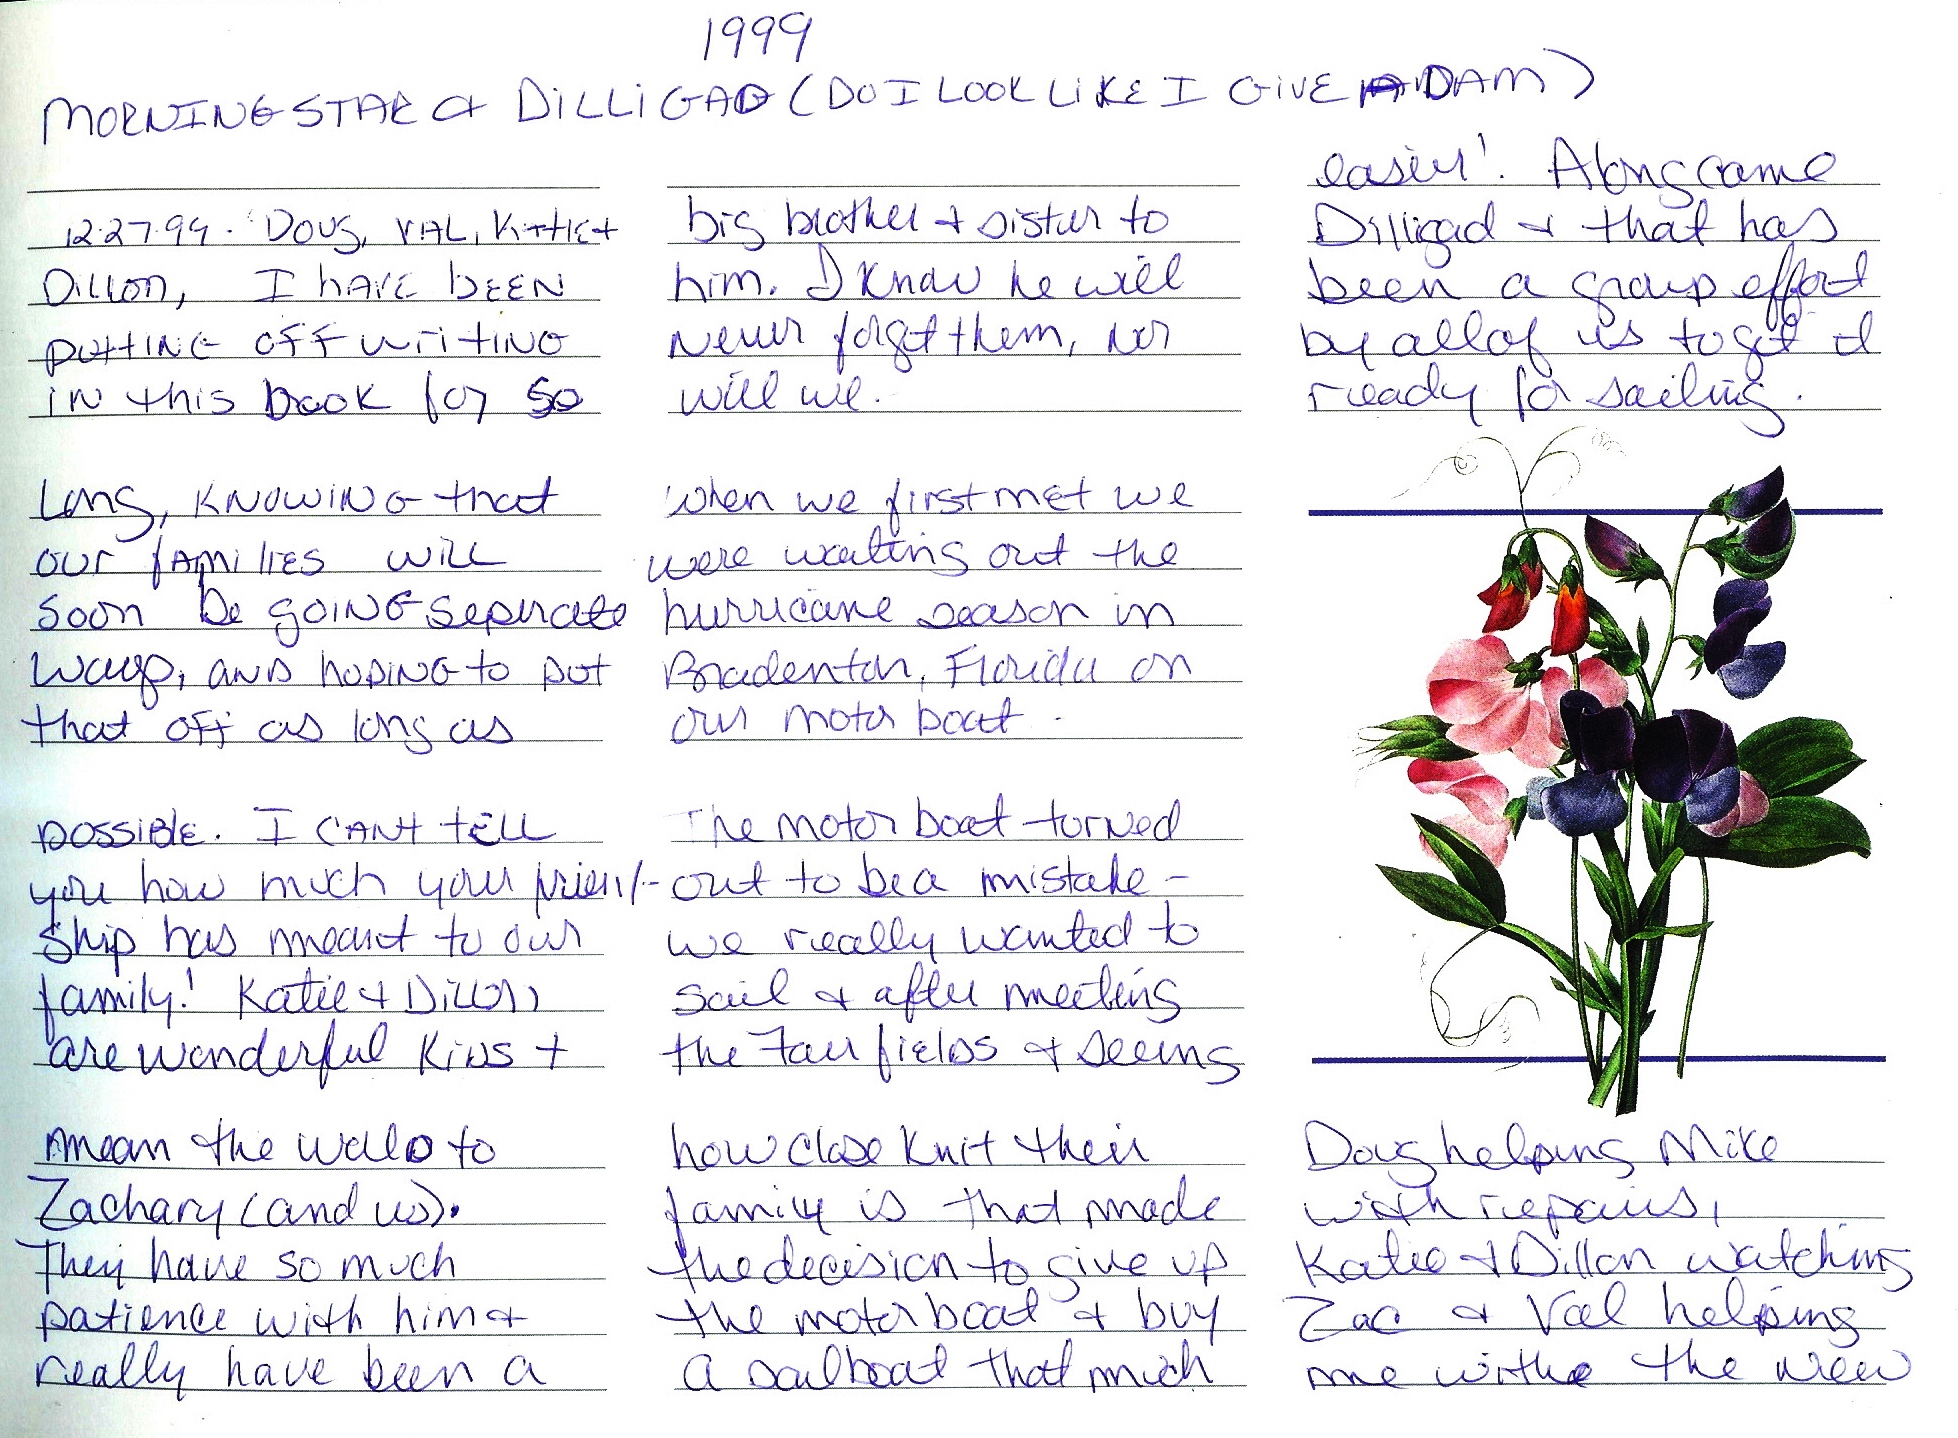 1999
MORNINGSTAR & DILLIGAD (DO I LOOK LIKE I GIVE A DAM)
12-27-99. Doug, VAL, Katie +
Dillon, I HAVE bEEN
putting off writing
in this book for so
Long, KNOWING that
our families will
soon be going seperate
ways, and hoping to put
that off as long as
possible. I CAN't tell
you how much your friend-
ship has meant to our
family! Katie + Dillon
are wonderful kids +
mean the world to
Zachary (and us).
They have so much
patience with him +
really have been a
big brother + sister to
him. I know he will
never forget them, nor
will we.
When we first met we
were waiting out the
hurricane season in
Bradenton, Florida on
our motor boat.
The motor boat turned
out to be a mistake -
we really wanted to
sail + after meeting
the Fairfields + seeing
how close knit their
family is that made
the decision to give up
the motor boat + buy
a sailboat that much
easier! Along came
Dilligad + that has
been a group effort
by all of us to get it
ready for sailing.
Doug helping Mike
with repairs,
Katie + Dillon watching
Zac + Val helping
me with the new